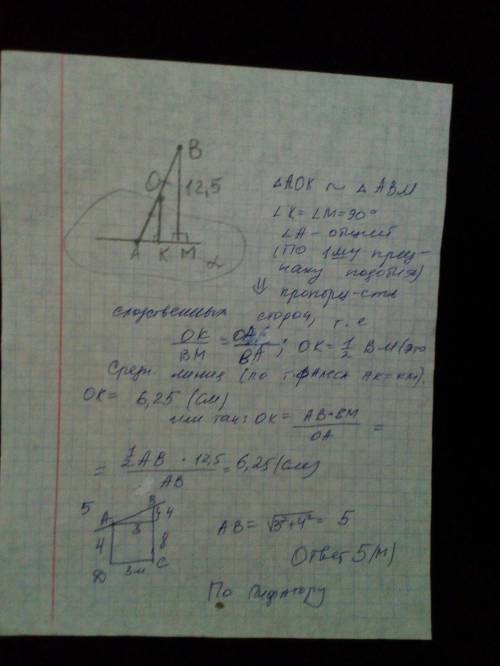 B
O
12,5
A K M α
△AOK ~ △ABM
∠K = ∠M = 90°
∠A – общий
(по 1му приз-
наку подобия)
⇓ пропорц-сть
сходственных сторон, т.е
OK/BM = OA/BA; OK = 1/2 BM (это
средн. линия (по т.Фалеса AK=KM).
OK = 6,25 (см)
или так: OK = AB·BM/OA =
= 1/2 AB · 12,5/AB = 6,25 (см)
5 A B 4
3
4 8
D 3м C
AB = √3²+4² = 5
Ответ 5(м)
По Пифагору